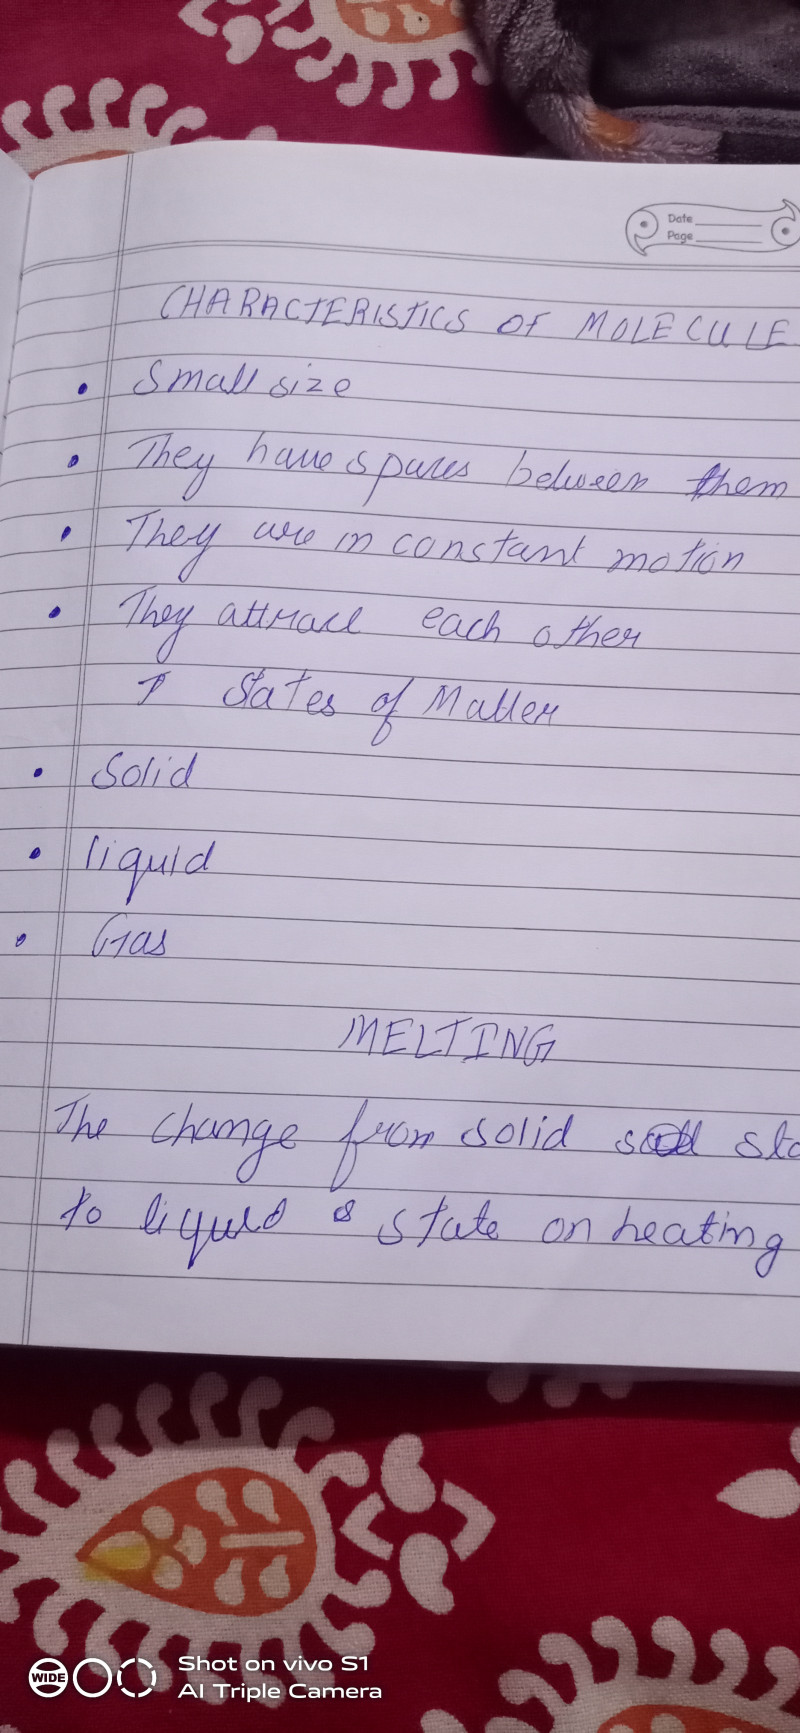 Date
Page
CHARACTERISTICS OF MOLECULE
• Small size
• They have spaces between them
• They are in constant motion
• They attract each other
States of Matter
• Solid
• liquid
• Gas
MELTING
The change from solid
to liquid state on heating
WIDE
Shot on vivo S1
AI Triple Camera